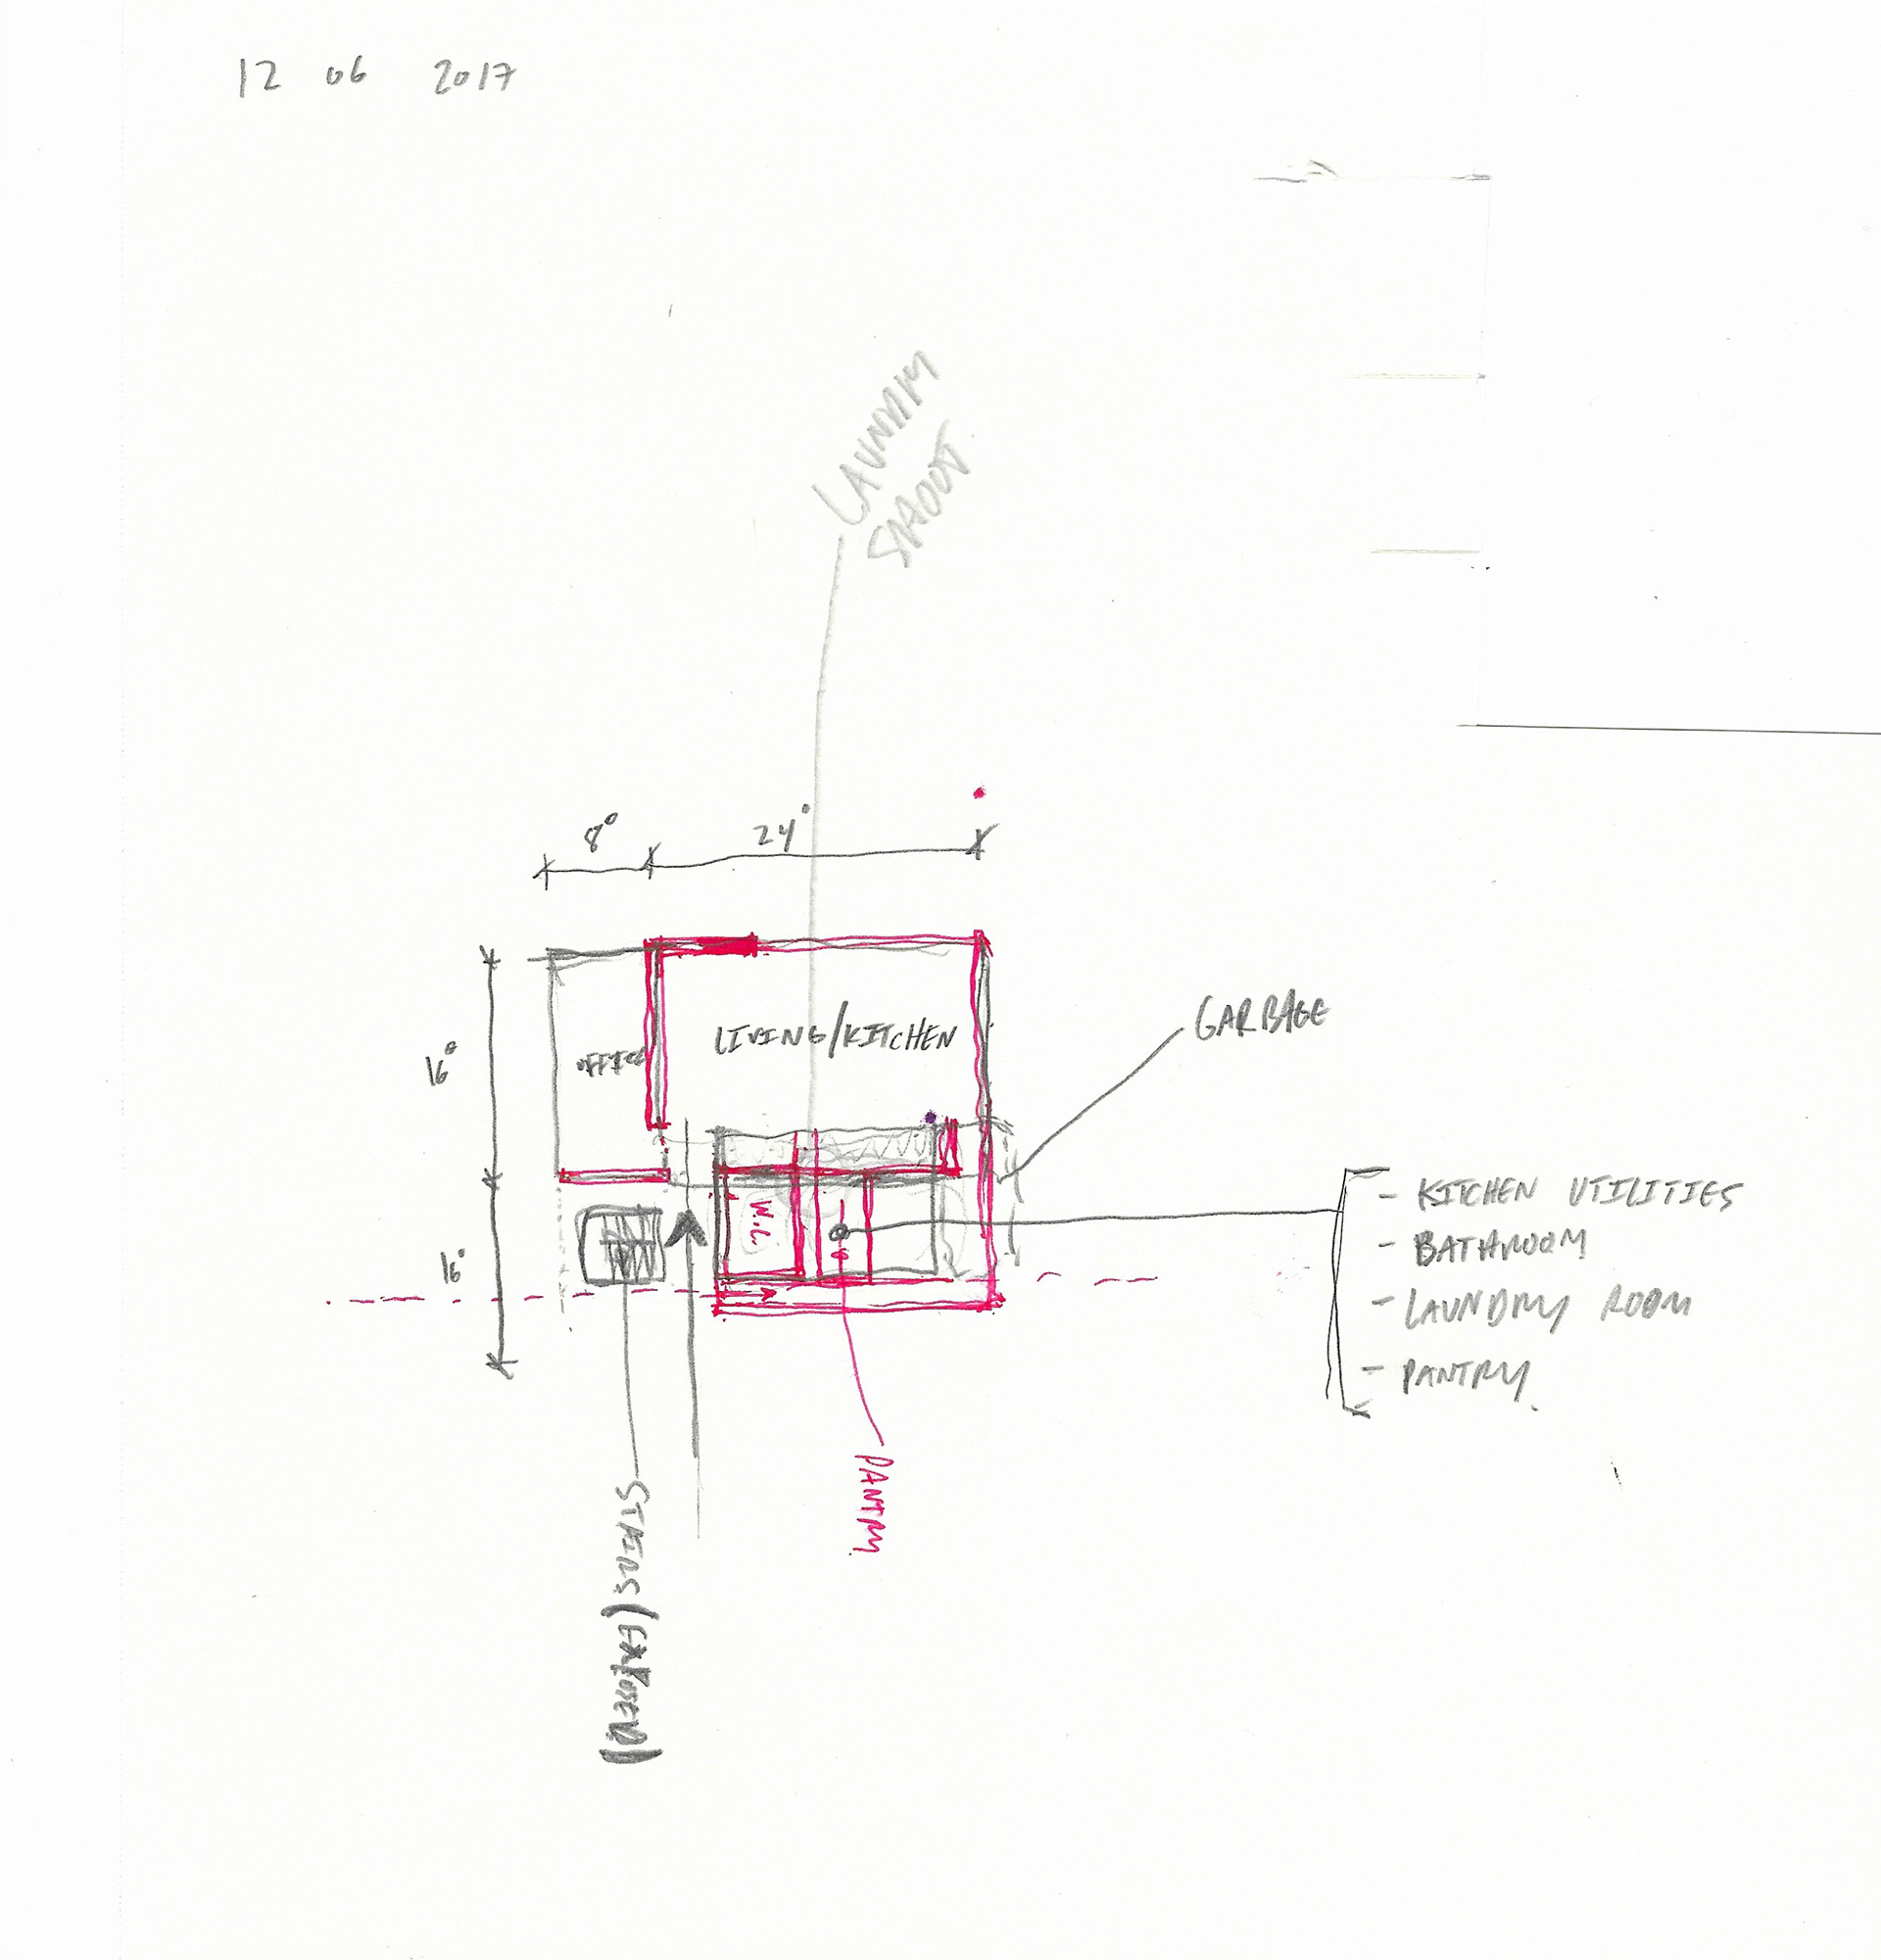 12 06 2017
LAUNDRY
SHOOT
8°
24°
16°
16°
OFFICE
LIVING/KITCHEN
GARBAGE
W.C.
- KITCHEN UTILITIES
- BATHROOM
- LAUNDRY ROOM
- PANTRY.
PANTRY
STAIRS (EXPOSED)